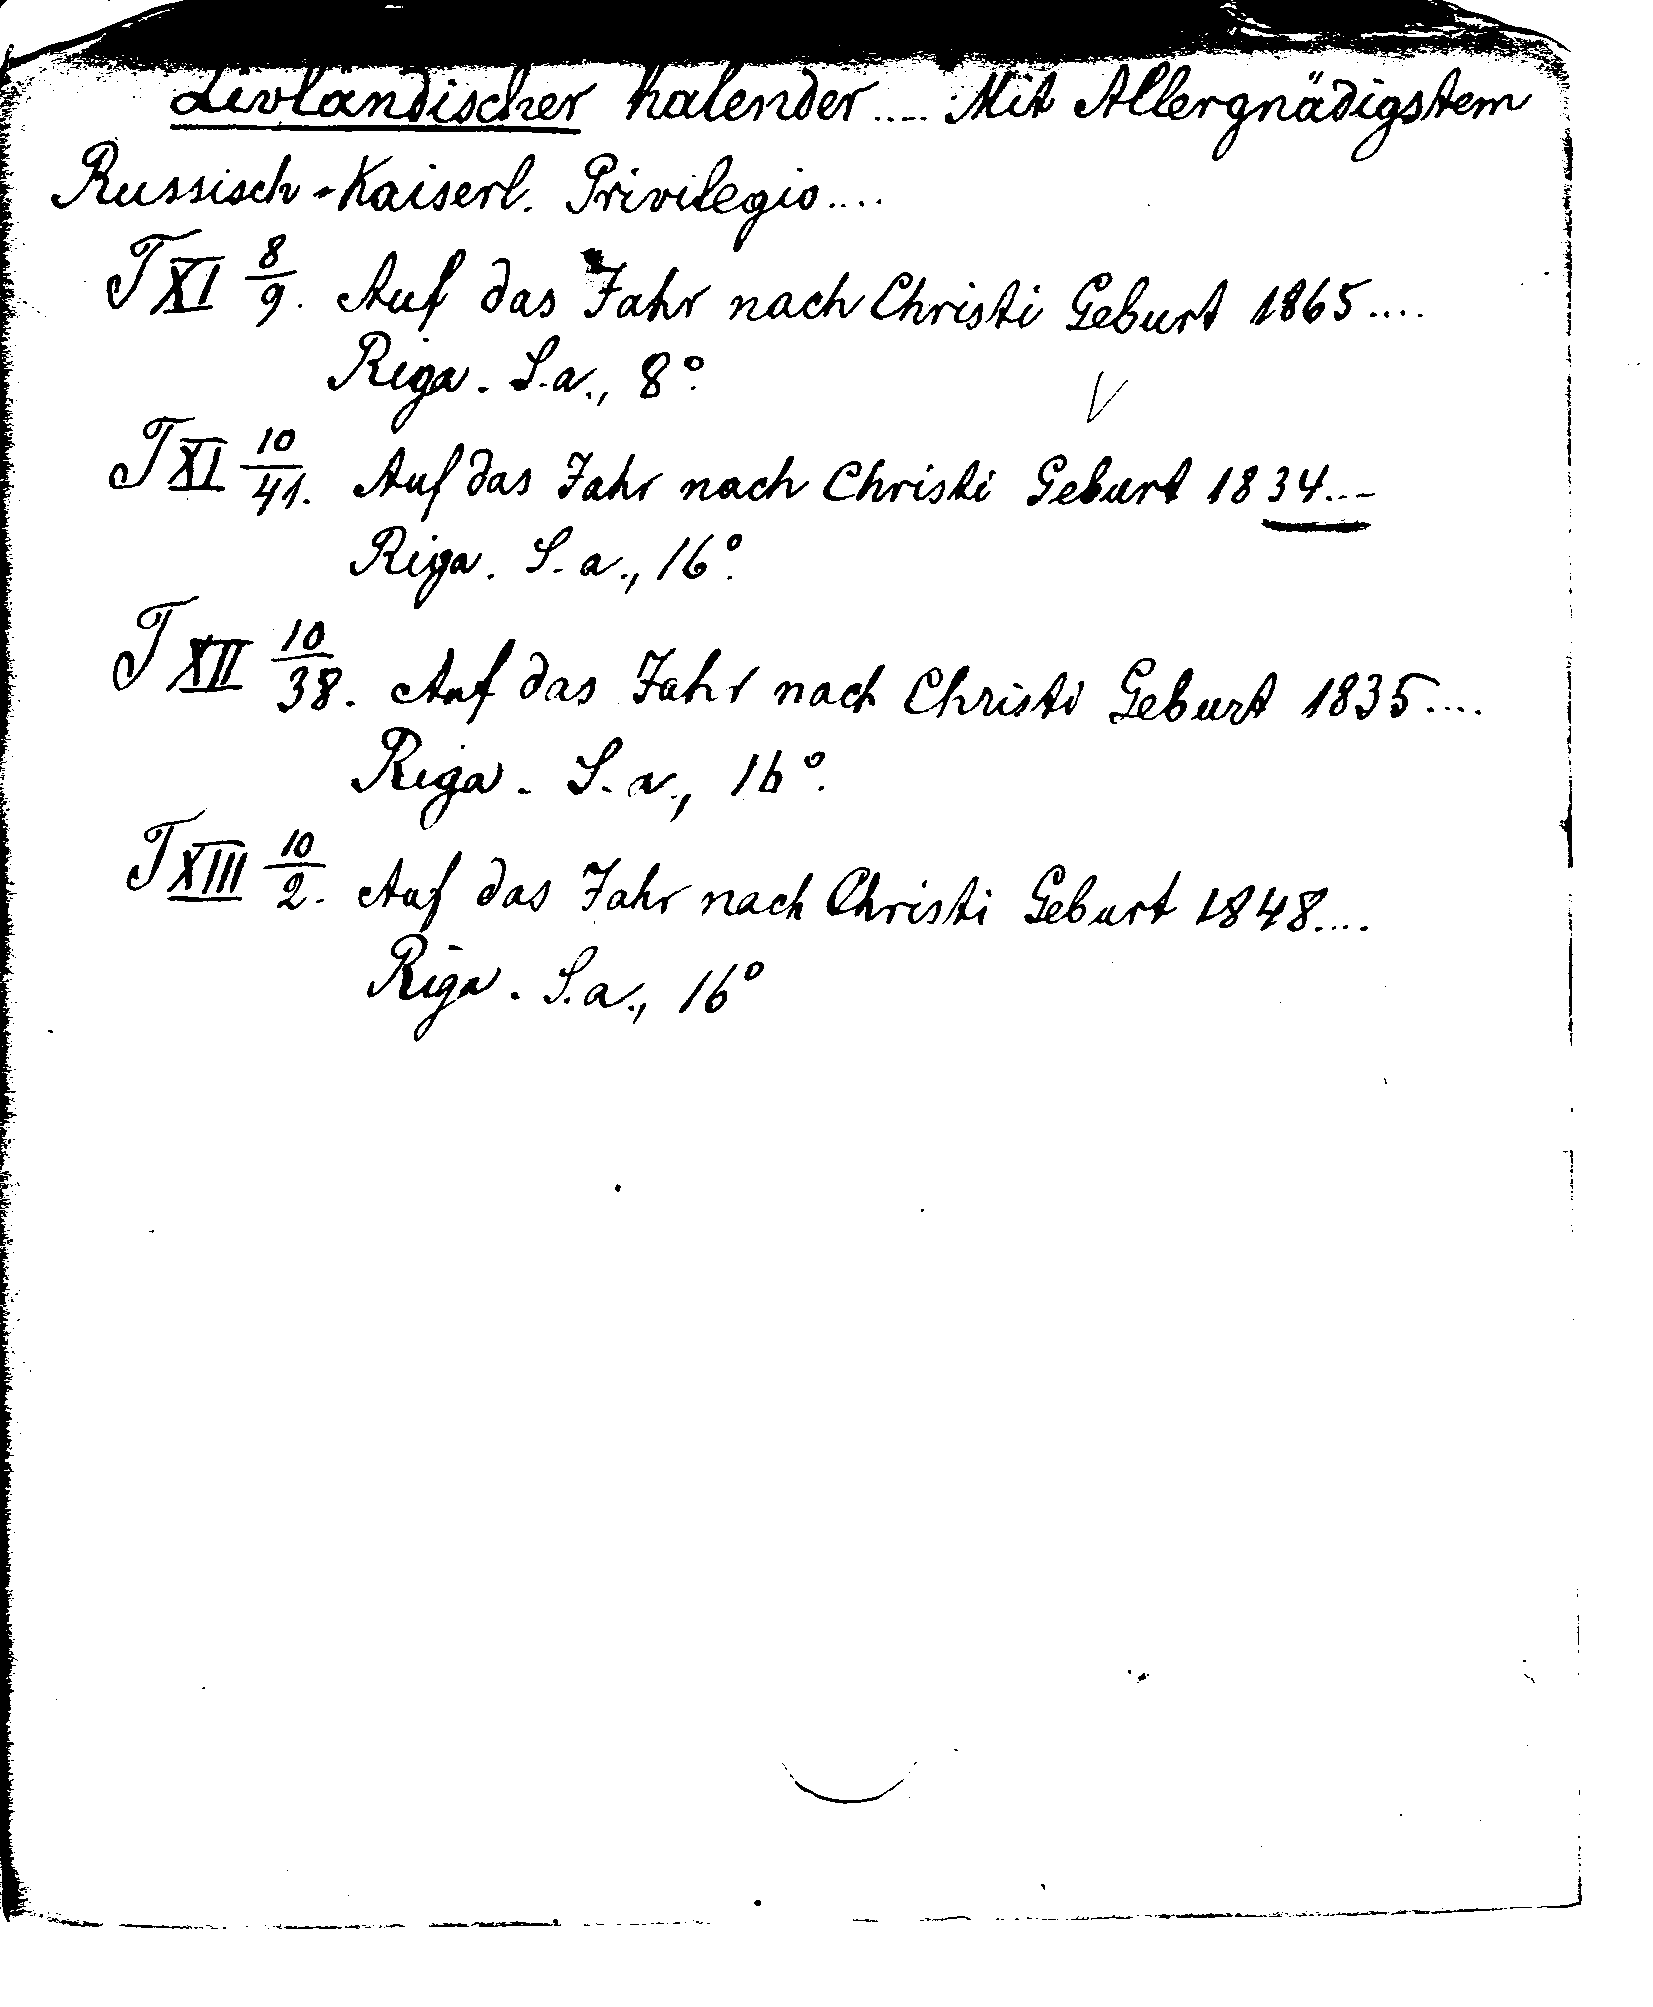 Livländischer Kalender.... Mit Allergnädigstem
Russisch-Kaiserl. Privilegio....
T XI 8/9. Auf das Jahr nach Christi Geburt 1865....
Riga. S.a., 8°.
V
T XI 10/41. Auf das Jahr nach Christi Geburt 1834....
Riga. S.a., 16°.
T XII 10/38. Auf das Jahr nach Christi Geburt 1835....
Riga. S.a., 16°.
T XIII 10/2. Auf das Jahr nach Christi Geburt 1848....
Riga. S.a., 16°